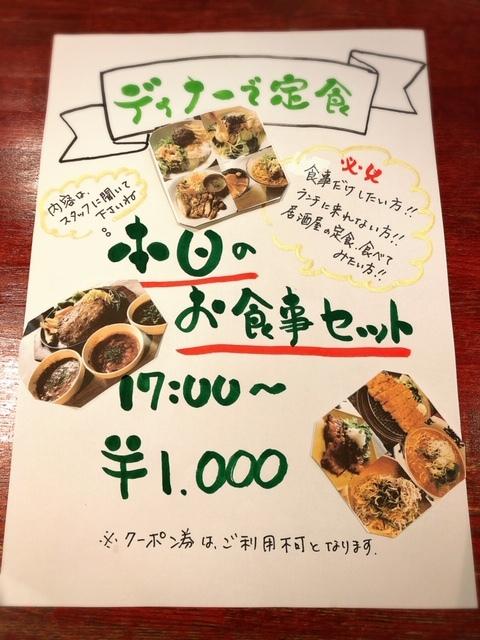 ディナーで定食
内容は、
スタッフに聞いて
下さいね
必必
食事だけしたい方!!
ランチに来れない方!!
居酒屋の定食、食べて
みたい方!!
本日の
お食事セット
17:00〜
¥1.000
※クーポン券は、ご利用不可となります。